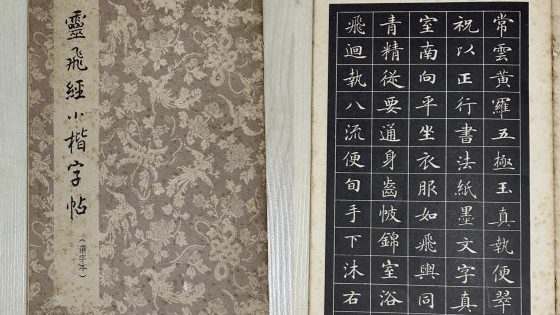 靈飛經小楷字帖
（選字本）
常雲黃羅五極玉真執便翠
祝以正行書法紙墨文字真
室南向平坐衣服如飛與同
青精從要通身齒帔錦室浴
飛迴執八流便旬手下沐右